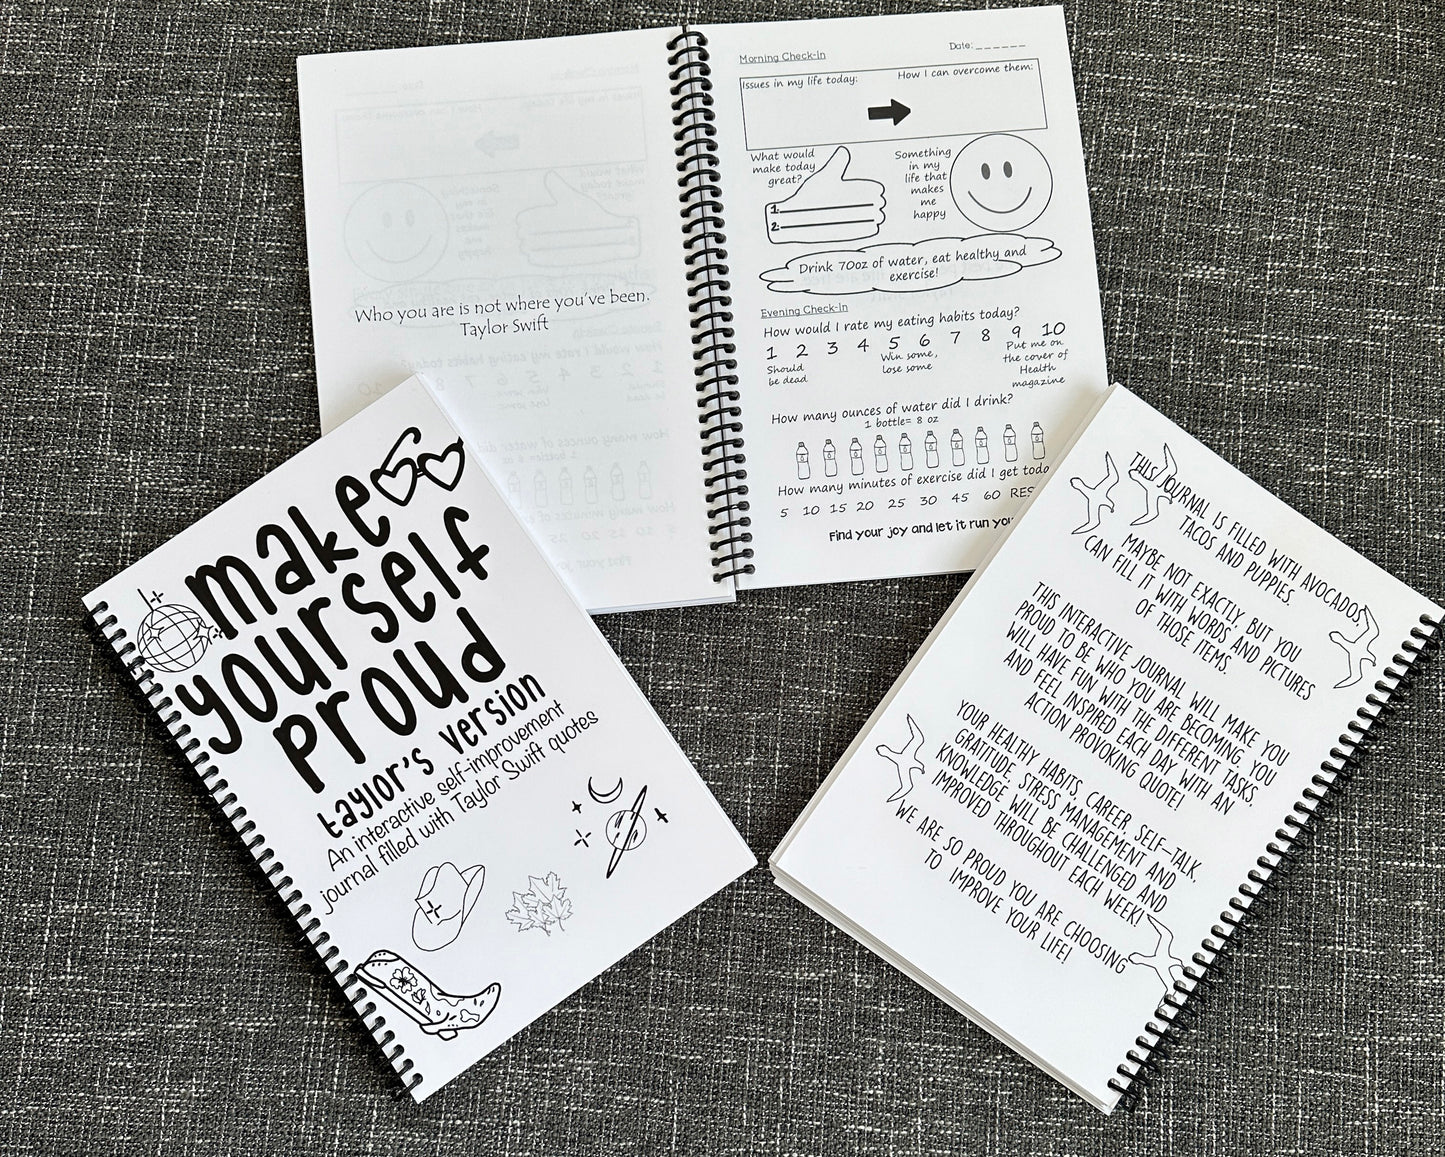 Who you are is not where you've been.
Taylor Swift
Morning Check-In
Date: ______
Issues in my life today:
How I can overcome them:
What would
make today
great?
1.
2.
Something
in my
life that
makes
me
happy
Drink 70oz of water, eat healthy and
exercise!
Evening Check-In
How would I rate my eating habits today?
1 2 3 4 5 6 7 8 9 10
Should
be dead
Win some,
lose some
Put me on
the cover of
Health
magazine
How many ounces of water did I drink?
1 bottle= 8 oz
How many minutes of exercise did I get
5 10 15 20 25 30 45 60
Find your joy and let it run
make
yourself
proud
taylor's version
An interactive self-improvement
journal filled with Taylor Swift quotes
THIS JOURNAL IS FILLED WITH AVOCADOS,
TACOS AND PUPPIES.
MAYBE NOT EXACTLY, BUT YOU
CAN FILL IT WITH WORDS AND PICTURES
OF THOSE ITEMS.
THIS INTERACTIVE JOURNAL WILL MAKE YOU
PROUD TO BE WHO YOU ARE BECOMING, YOU
WILL HAVE FUN WITH THE DIFFERENT TASKS,
AND FEEL INSPIRED EACH DAY WITH AN
ACTION PROVOKING QUOTE!
YOUR HEALTHY HABITS, CAREER, SELF-TALK,
GRATITUDE, STRESS MANAGEMENT AND
KNOWLEDGE WILL BE CHALLENGED AND
IMPROVED THROUGHOUT EACH WEEK!
WE ARE SO PROUD YOU ARE CHOOSING
TO IMPROVE YOUR LIFE!